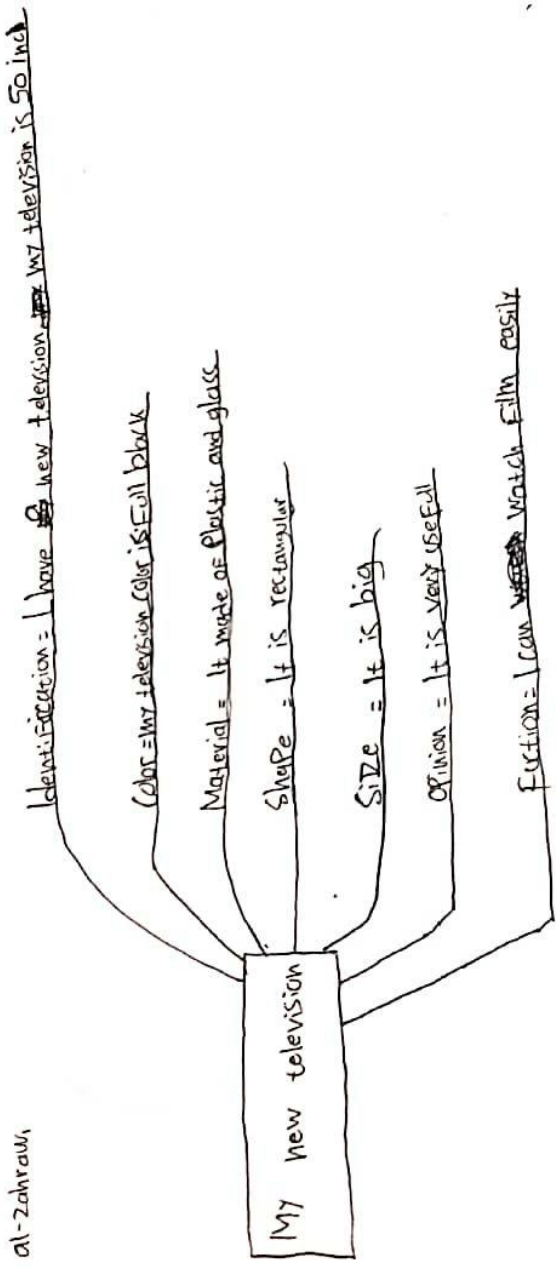 al-zahrawi
Identification = I have new television. my television is 50 inch
Color = my television color is full black
Material = It made of Plastic and glass
My new television
Shape = It is rectangular
Size = It is big
Opinion = It is very useful
Fuction = I can watch film easily